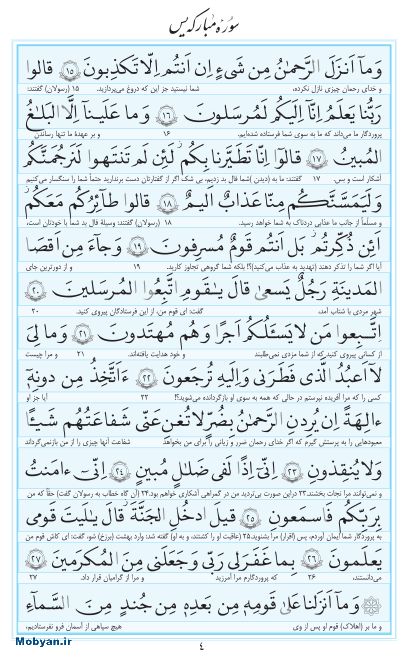 سورهٔ مبارکه یس
وَمآ اَنزَلَ الرَّحمٰنُ مِن شَیءٍ اِن اَنتُم اِلّا تَکذِبونَ ۱۵ قالوا
و خدای رحمان چیزی نازل نکرده، شما نیستید جز این که دروغ می‌پردازید. ۱۵ (رسولان) گفتند:
رَبُّنا یَعلَمُ اِنّآ اِلَیکُم لَمُرسَلونَ ۱۶ وَما عَلَینآ اِلَّا البَلٰغُ
پروردگار ما می‌داند که ما به سوی شما فرستاده شده‌ایم. ۱۶ و بر عهدهٔ ما تنها رساندن
المُبینُ ۱۷ قالوٓا اِنّا تَطَیَّرنا بِکُم لَئِن لَم تَنتَهوا لَنَرجُمَنَّکُم
آشکار است و بس. ۱۷ گفتند: ما به (دیدن) شما فال بد زدیم، بی شک اگر از گفتارتان دست برندارید حتماً شما را سنگسار می‌کنیم
وَلَیَمَسَّنَّکُم مِنّا عَذابٌ اَلیمٌ ۱۸ قالوا طٓائِرُکُم مَعَکُم
و مسلماً از جانب ما عذابی دردناک به شما خواهد رسید. ۱۸ (رسولان) گفتند: وسیلهٔ فال بد شما با خودتان است،
اَئِن ذُکِّرتُم بَل اَنتُم قَومٌ مُسرِفونَ ۱۹ وَجآءَ مِن اَقصَا
آیا اگر شما را تذکر دهند (تهدید به عذاب می کنید)؟! بلکه شما گروهی تجاوز کارید. ۱۹ و از دورترین جای
المَدینَةِ رَجُلٌ یَسعیٰ قالَ یٰقَومِ اتَّبِعُوا المُرسَلینَ ۲۰
شهر مردی با شتاب آمد، گفت: ای قوم من، از این فرستادگان پیروی کنید. ۲۰
اِتَّبِعوا مَن لا یَسئَلُکُم اَجرًا وَهُم مُهتَدونَ ۲۱ وَما لِیَ
از کسانی پیروی کنید که از شما مزدی نمی‌طلبند و خود هدایت یافته‌اند. ۲۱ و مرا چیست
لآ اَعبُدُ الَّذی فَطَرَنی وَاِلَیهِ تُرجَعونَ ۲۲ ءَاَتَّخِذُ مِن دونِهٖٓ
کسی را که مرا آفریده نپرستم در حالی که همه به سوی او بازگردانده می‌شوید؟! ۲۲ آیا جز او
ءالِهَةً اِن یُرِدنِ الرَّحمٰنُ بِضُرٍّ لا تُغنِ عَنّی شَفاعَتُهُم شَیئًا
معبودهایی را به پرستش گیرم که اگر خدای رحمان ضرر و زیانی را برای من بخواهد شفاعت آنها چیزی را از من بازنمی‌گرداند
وَلا یُنقِذونِ ۲۳ اِنّیٓ اِذًا لَفی ضَلٰلٍ مُبینٍ ۲۴ اِنّیٓ ءامَنتُ
و نمی‌توانند مرا نجات بخشند. ۲۳ در این صورت بی‌تردید من در گمراهی آشکاری خواهم بود. ۲۴ (آن گاه خطاب به رسولان گفت) حقاً که من
بِرَبِّکُم فَاسمَعونِ ۲۵ قیلَ ادخُلِ الجَنَّةَ قالَ یٰلَیتَ قَومی
به پروردگار شما ایمان آوردم، پس (اقرار) مرا بشنوید. ۲۵ (عاقبت او را کشتند، و به او) گفته شد: وارد بهشت (برزخ) شو، گفت: ای کاش قوم من
یَعلَمونَ ۲۶ بِما غَفَرَلی رَبّی وَجَعَلَنی مِنَ المُکرَمینَ ۲۷
می‌دانستند، ۲۶ که پروردگارم مرا آمرزید و مرا از گرامیان قرار داد. ۲۷
وَمآ اَنزَلنا عَلیٰ قَومِهٖ مِن بَعدِهٖ مِن جُندٍ مِنَ السَّمآءِ
و ما بر (اهلاک) قوم او پس از وی، هیچ سپاهی از آسمان فرو نفرستادیم،
۴
Mobyan.ir